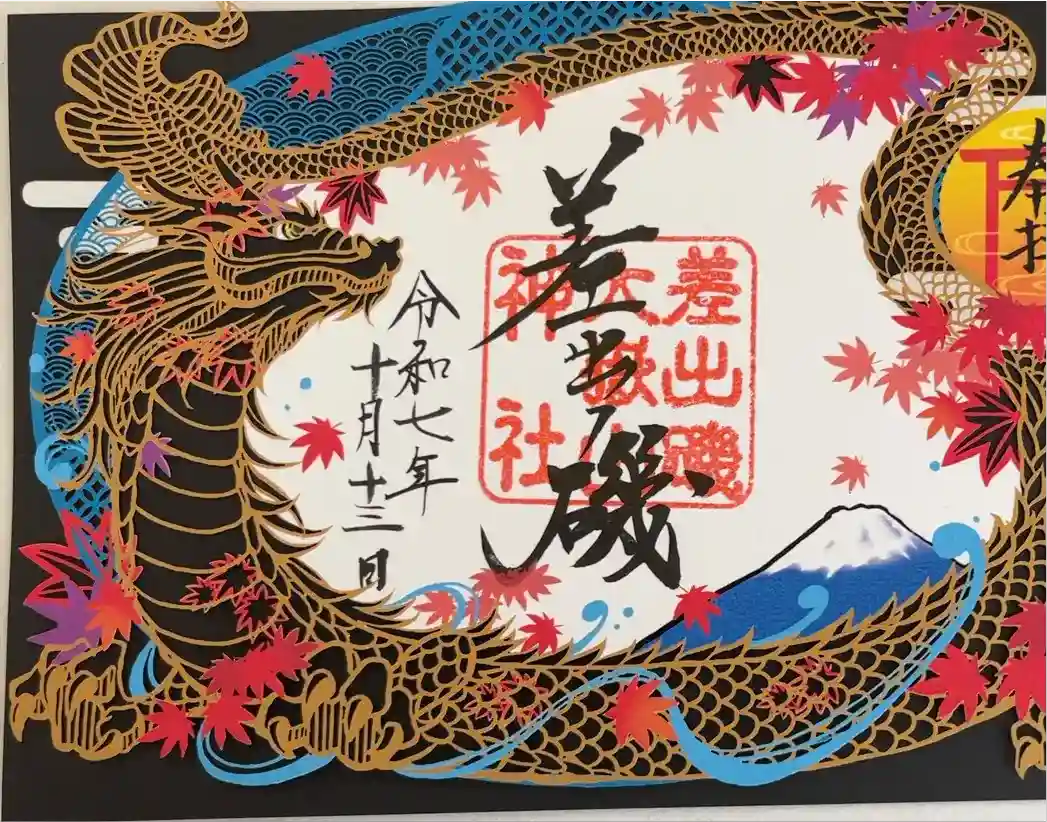 奉拝
差出ノ磯
差出磯
大嶽山
神社
令和七年
十月十三日